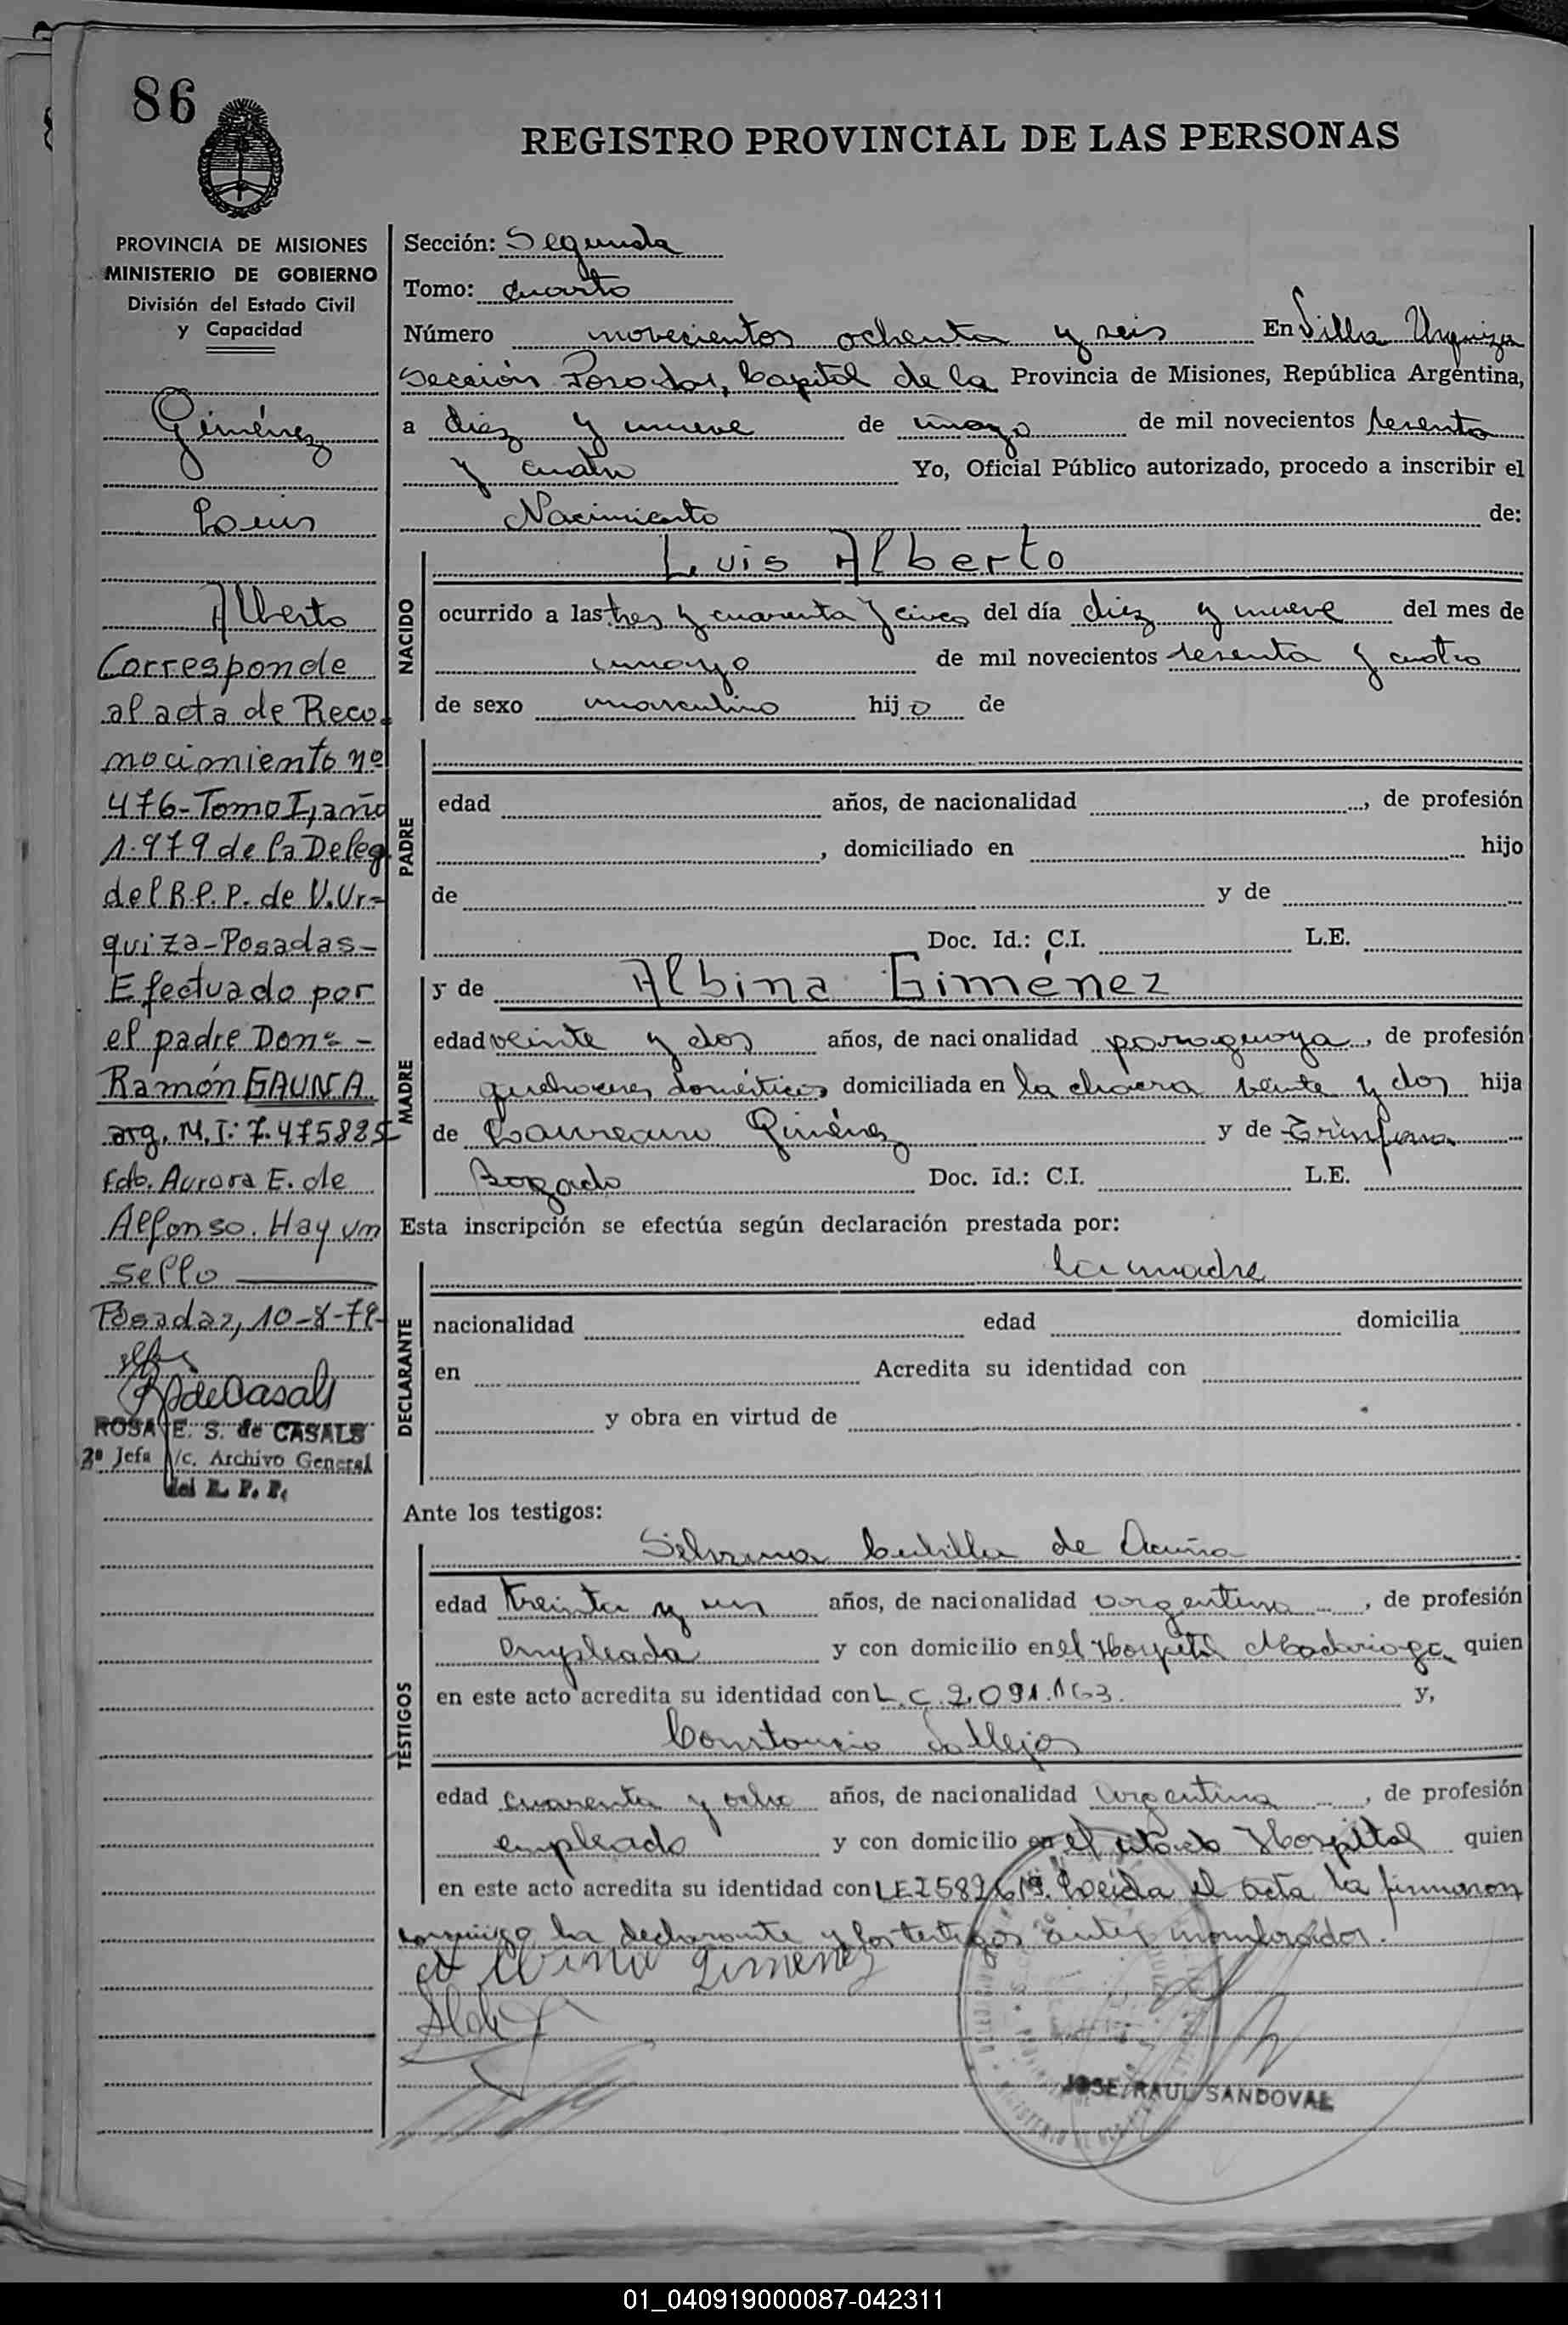 86
REGISTRO PROVINCIAL DE LAS PERSONAS
PROVINCIA DE MISIONES
MINISTERIO DE GOBIERNO
División del Estado Civil
y Capacidad
Giménez
Luis
Alberto
Corresponde
al acta de Reco-
nocimiento nº
476-Tomo I, año
1.979 de la Deleg.
del R.P.P. de V. Ur-
quiza-Posadas-
Efectuado por
el padre Don: -
Ramón GAUNA
arg. M.I: 7.475825
Fdo. Aurora E. de
Alfonso. Hay un
sello
Posadas, 10-8-79-
RdeCasals
ROSA E. S. de CASALS
2º Jefa /c. Archivo General
del R. P. P.
Sección: Segunda
Tomo: cuarto
Número novecientos ochenta y seis En Villa Urquiza
Sección Posadas, Capital de la Provincia de Misiones, República Argentina,
a diez y nueve de mayo de mil novecientos sesenta
y cuatro Yo, Oficial Público autorizado, procedo a inscribir el
Nacimiento de:
NACIDO
Luis Alberto
ocurrido a las tres y cuarenta y cinco del día diez y nueve del mes de
mayo de mil novecientos sesenta y cuatro
de sexo masculino hijo de
PADRE
edad años, de nacionalidad , de profesión
, domiciliado en hijo
de y de
Doc. Id.: C.I. L.E.
MADRE
y de Albina Giménez
edad veinte y dos años, de nacionalidad paraguaya, de profesión
quehaceres domésticos domiciliada en la chacra veinte y dos hija
de Laureano Giménez y de
Bogado Doc. Id.: C.I. L.E.
Esta inscripción se efectúa según declaración prestada por:
DECLARANTE
la madre
nacionalidad edad domicilia
en Acredita su identidad con
y obra en virtud de
Ante los testigos:
TESTIGOS
de Acuña
edad treinta y un años, de nacionalidad argentina, de profesión
empleada y con domicilio en el Hospital Madariaga quien
en este acto acredita su identidad con L.C.2.091.163. y,
Constancio Vallejos
edad cuarenta y ocho años, de nacionalidad argentina, de profesión
empleado y con domicilio en el citado Hospital quien
en este acto acredita su identidad con LE Leída el acta la firmaron
conmigo la declarante y los testigos antes nombrados.
Albina Gimenez
JOSE RAUL SANDOVAL
01_040919000087-042311